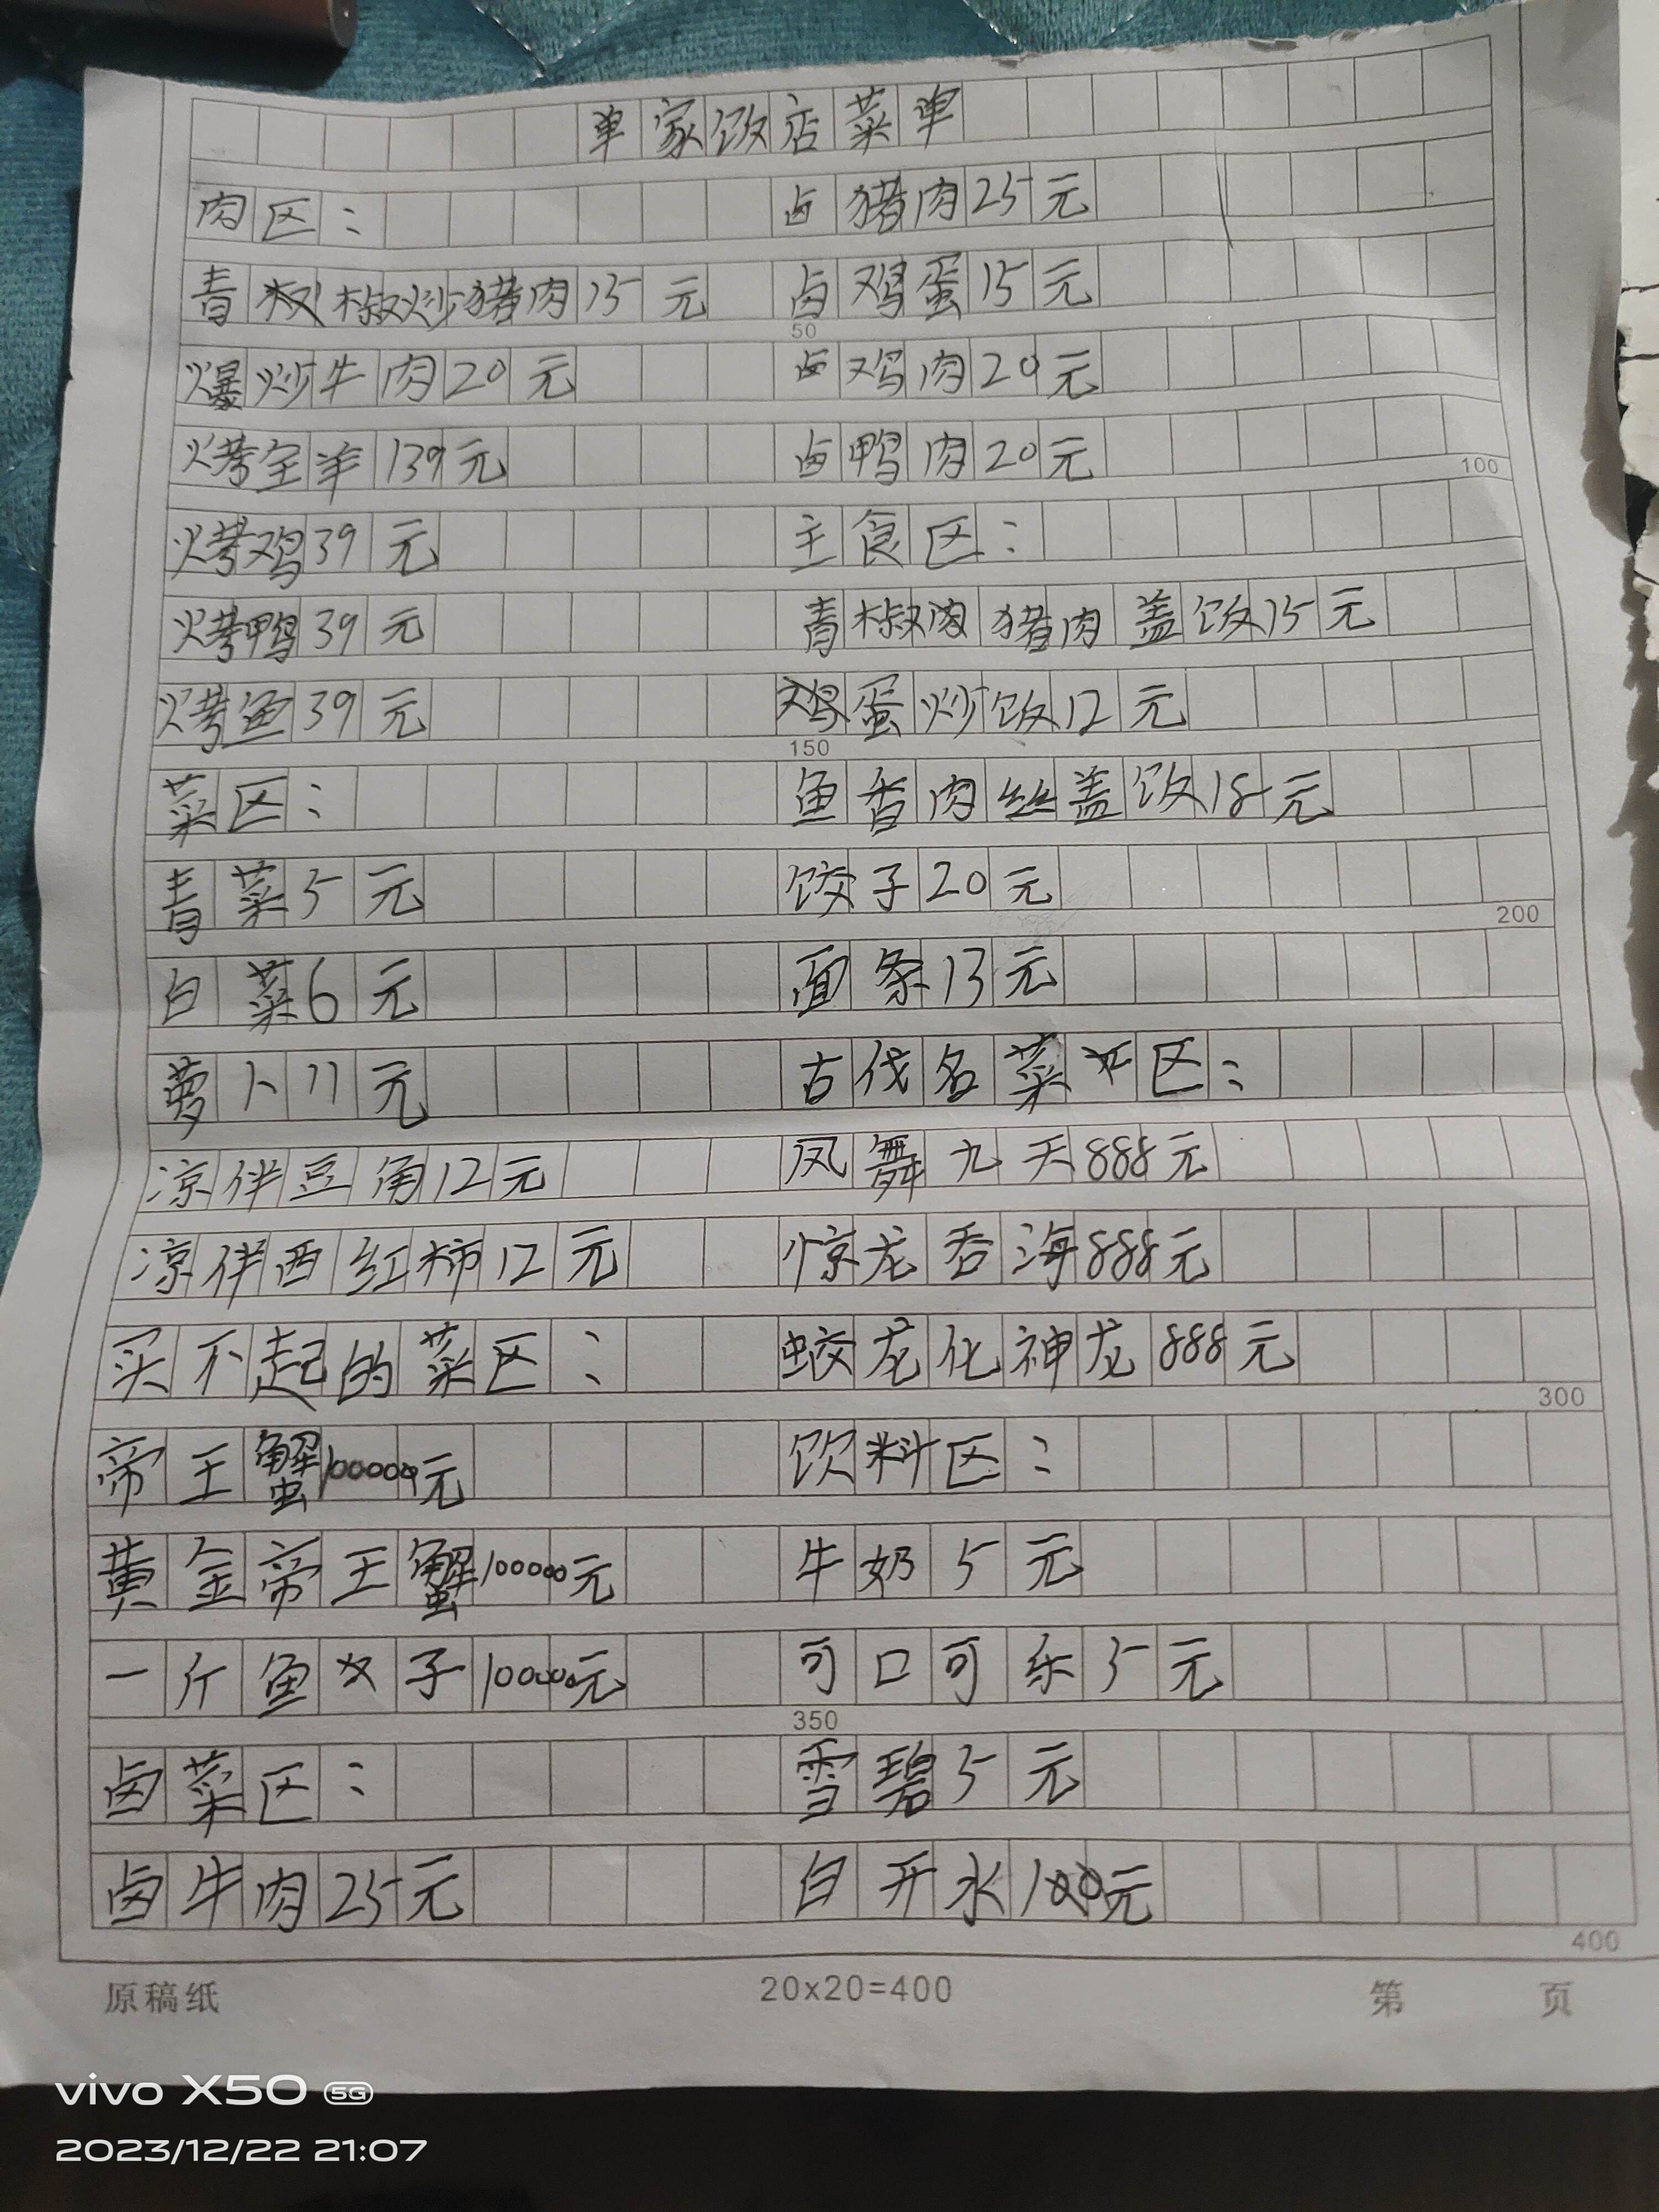 单家饭店菜单
肉区：
青椒炒猪肉15元
爆炒牛肉20元
烤全羊139元
烤鸡39元
烤鸭39元
烤鱼39元
菜区：
青菜5元
白菜6元
萝卜11元
凉伴豆角12元
凉伴西红柿12元
买不起的菜区：
帝王蟹100000元
黄金帝王蟹100000元
一斤鱼子10000元
卤菜区：
卤牛肉25元
卤猪肉25元
卤鸡蛋15元
卤鸡肉20元
卤鸭肉20元
主食区：
青椒肉猪肉盖饭15元
鸡蛋炒饭12元
鱼香肉丝盖饭18元
饺子20元
面条13元
古代名菜区：
凤舞九天888元
惊龙吞海888元
蛟龙化神龙888元
饮料区：
牛奶5元
可口可乐5元
雪碧5元
白开水100元
50
100
150
200
300
350
400
原稿纸
20x20=400
第 页
vivo X50 5G
2023/12/22 21:07